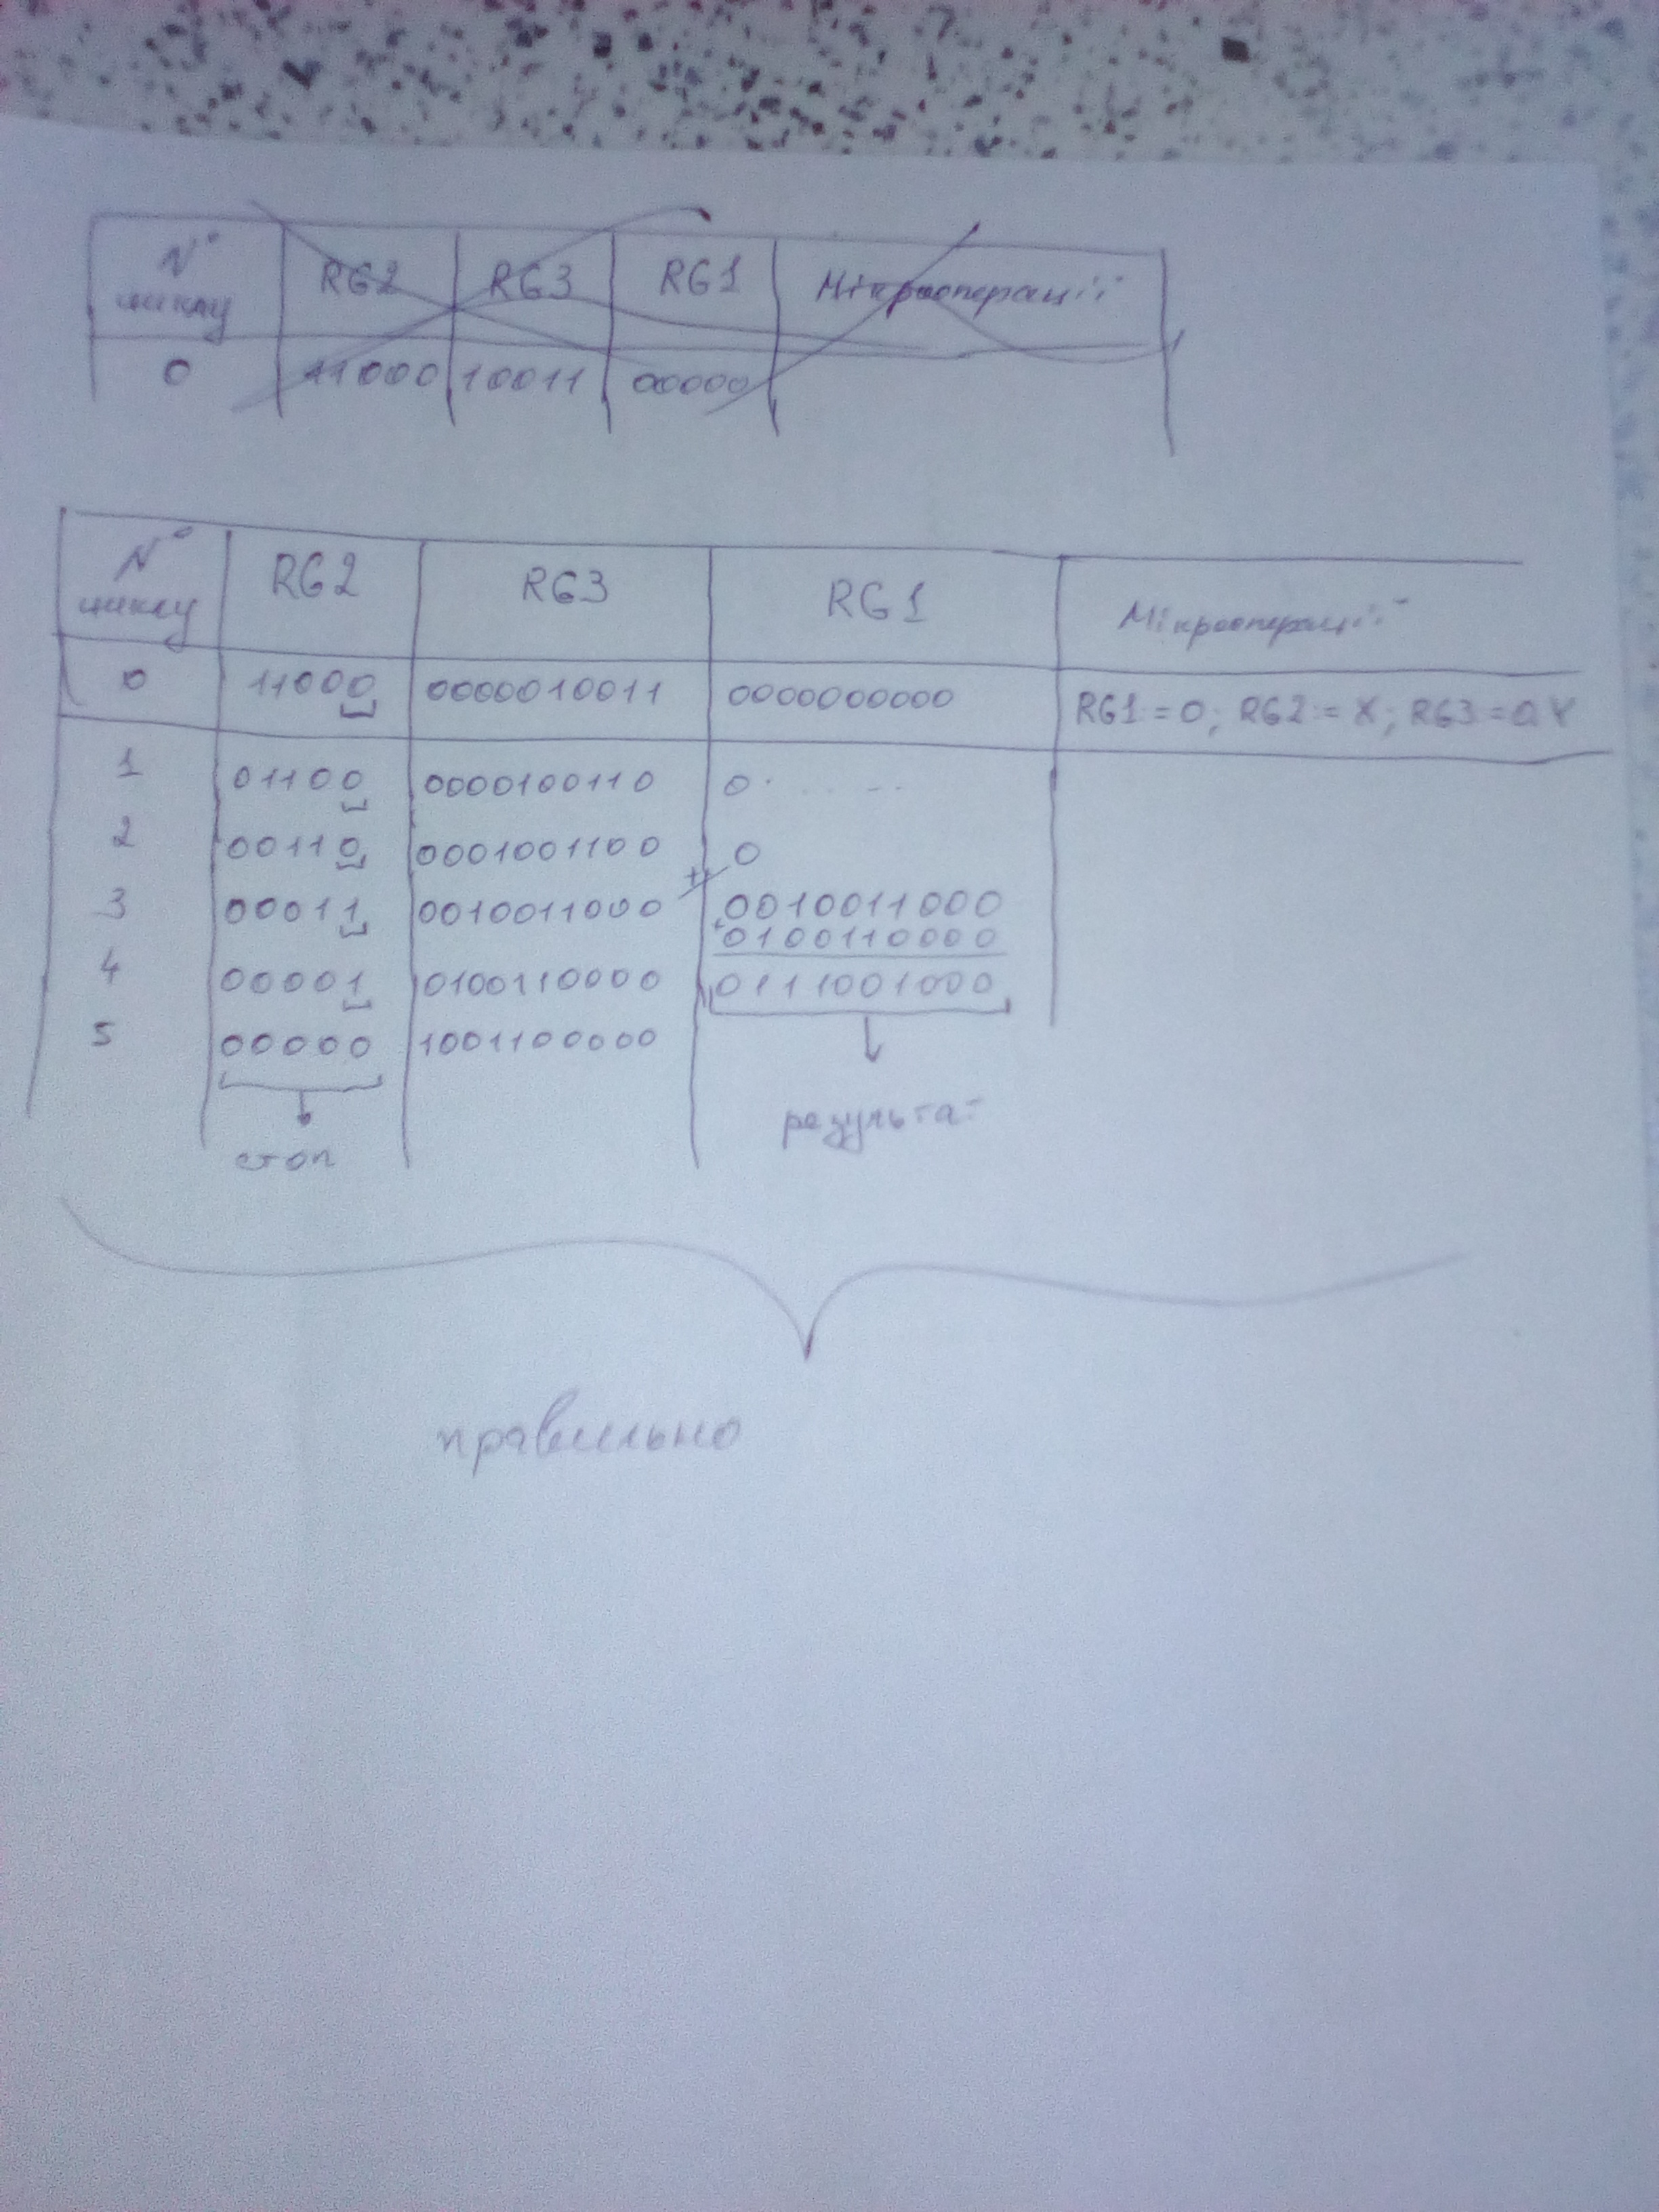 № циклу RG2 RG3 RG1 Мікрооперації
0 11000 10011 00000
№ циклу RG2 RG3 RG1 Мікрооперації
0 11000 0000010011 0000000000 RG1:=0; RG2:=X; RG3:=0.Y
1 01100 0000100110 0. . . --
2 00110 0001001100 0
3 00011 0010011000 + 0010011000
+0100110000
4 00001 0100110000 0111001000
5 00000 1001100000
результат
стоп
правильно